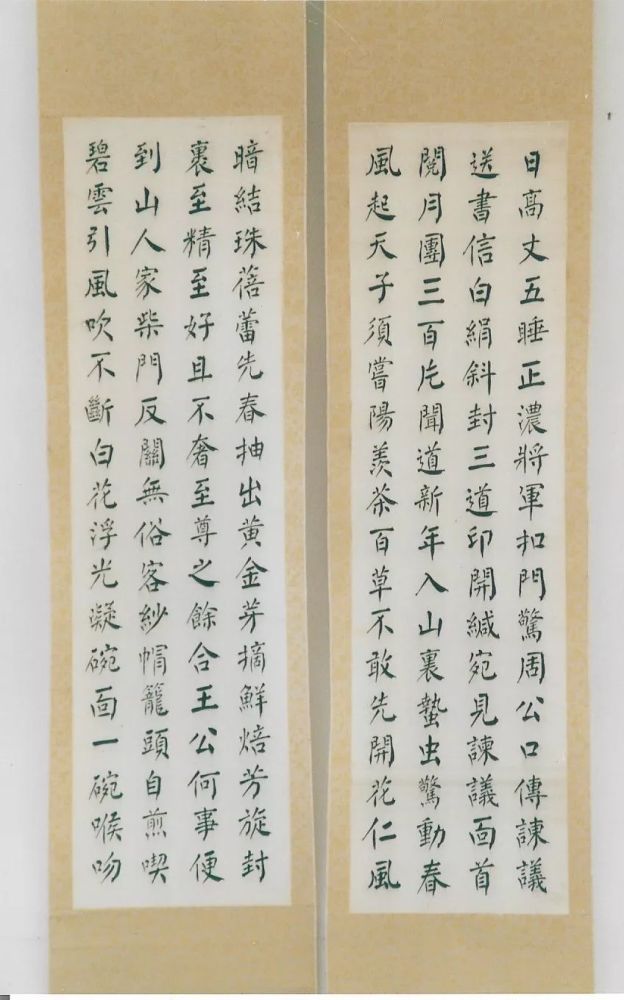 日高丈五睡正濃將軍扣門驚周公口傳諫議
送書信白絹斜封三道印開緘宛見諫議面首
閱月團三百片聞道新年入山裏蟄虫驚動春
風起天子須嘗陽羨茶百草不敢先開花仁風
暗結珠蓓蕾先春抽出黄金芽摘鮮焙芳旋封
裹至精至好且不奢至尊之餘合王公何事便
到山人家柴門反關無俗客紗帽籠頭自煎喫
碧雲引風吹不斷白花浮光凝碗面一碗喉吻